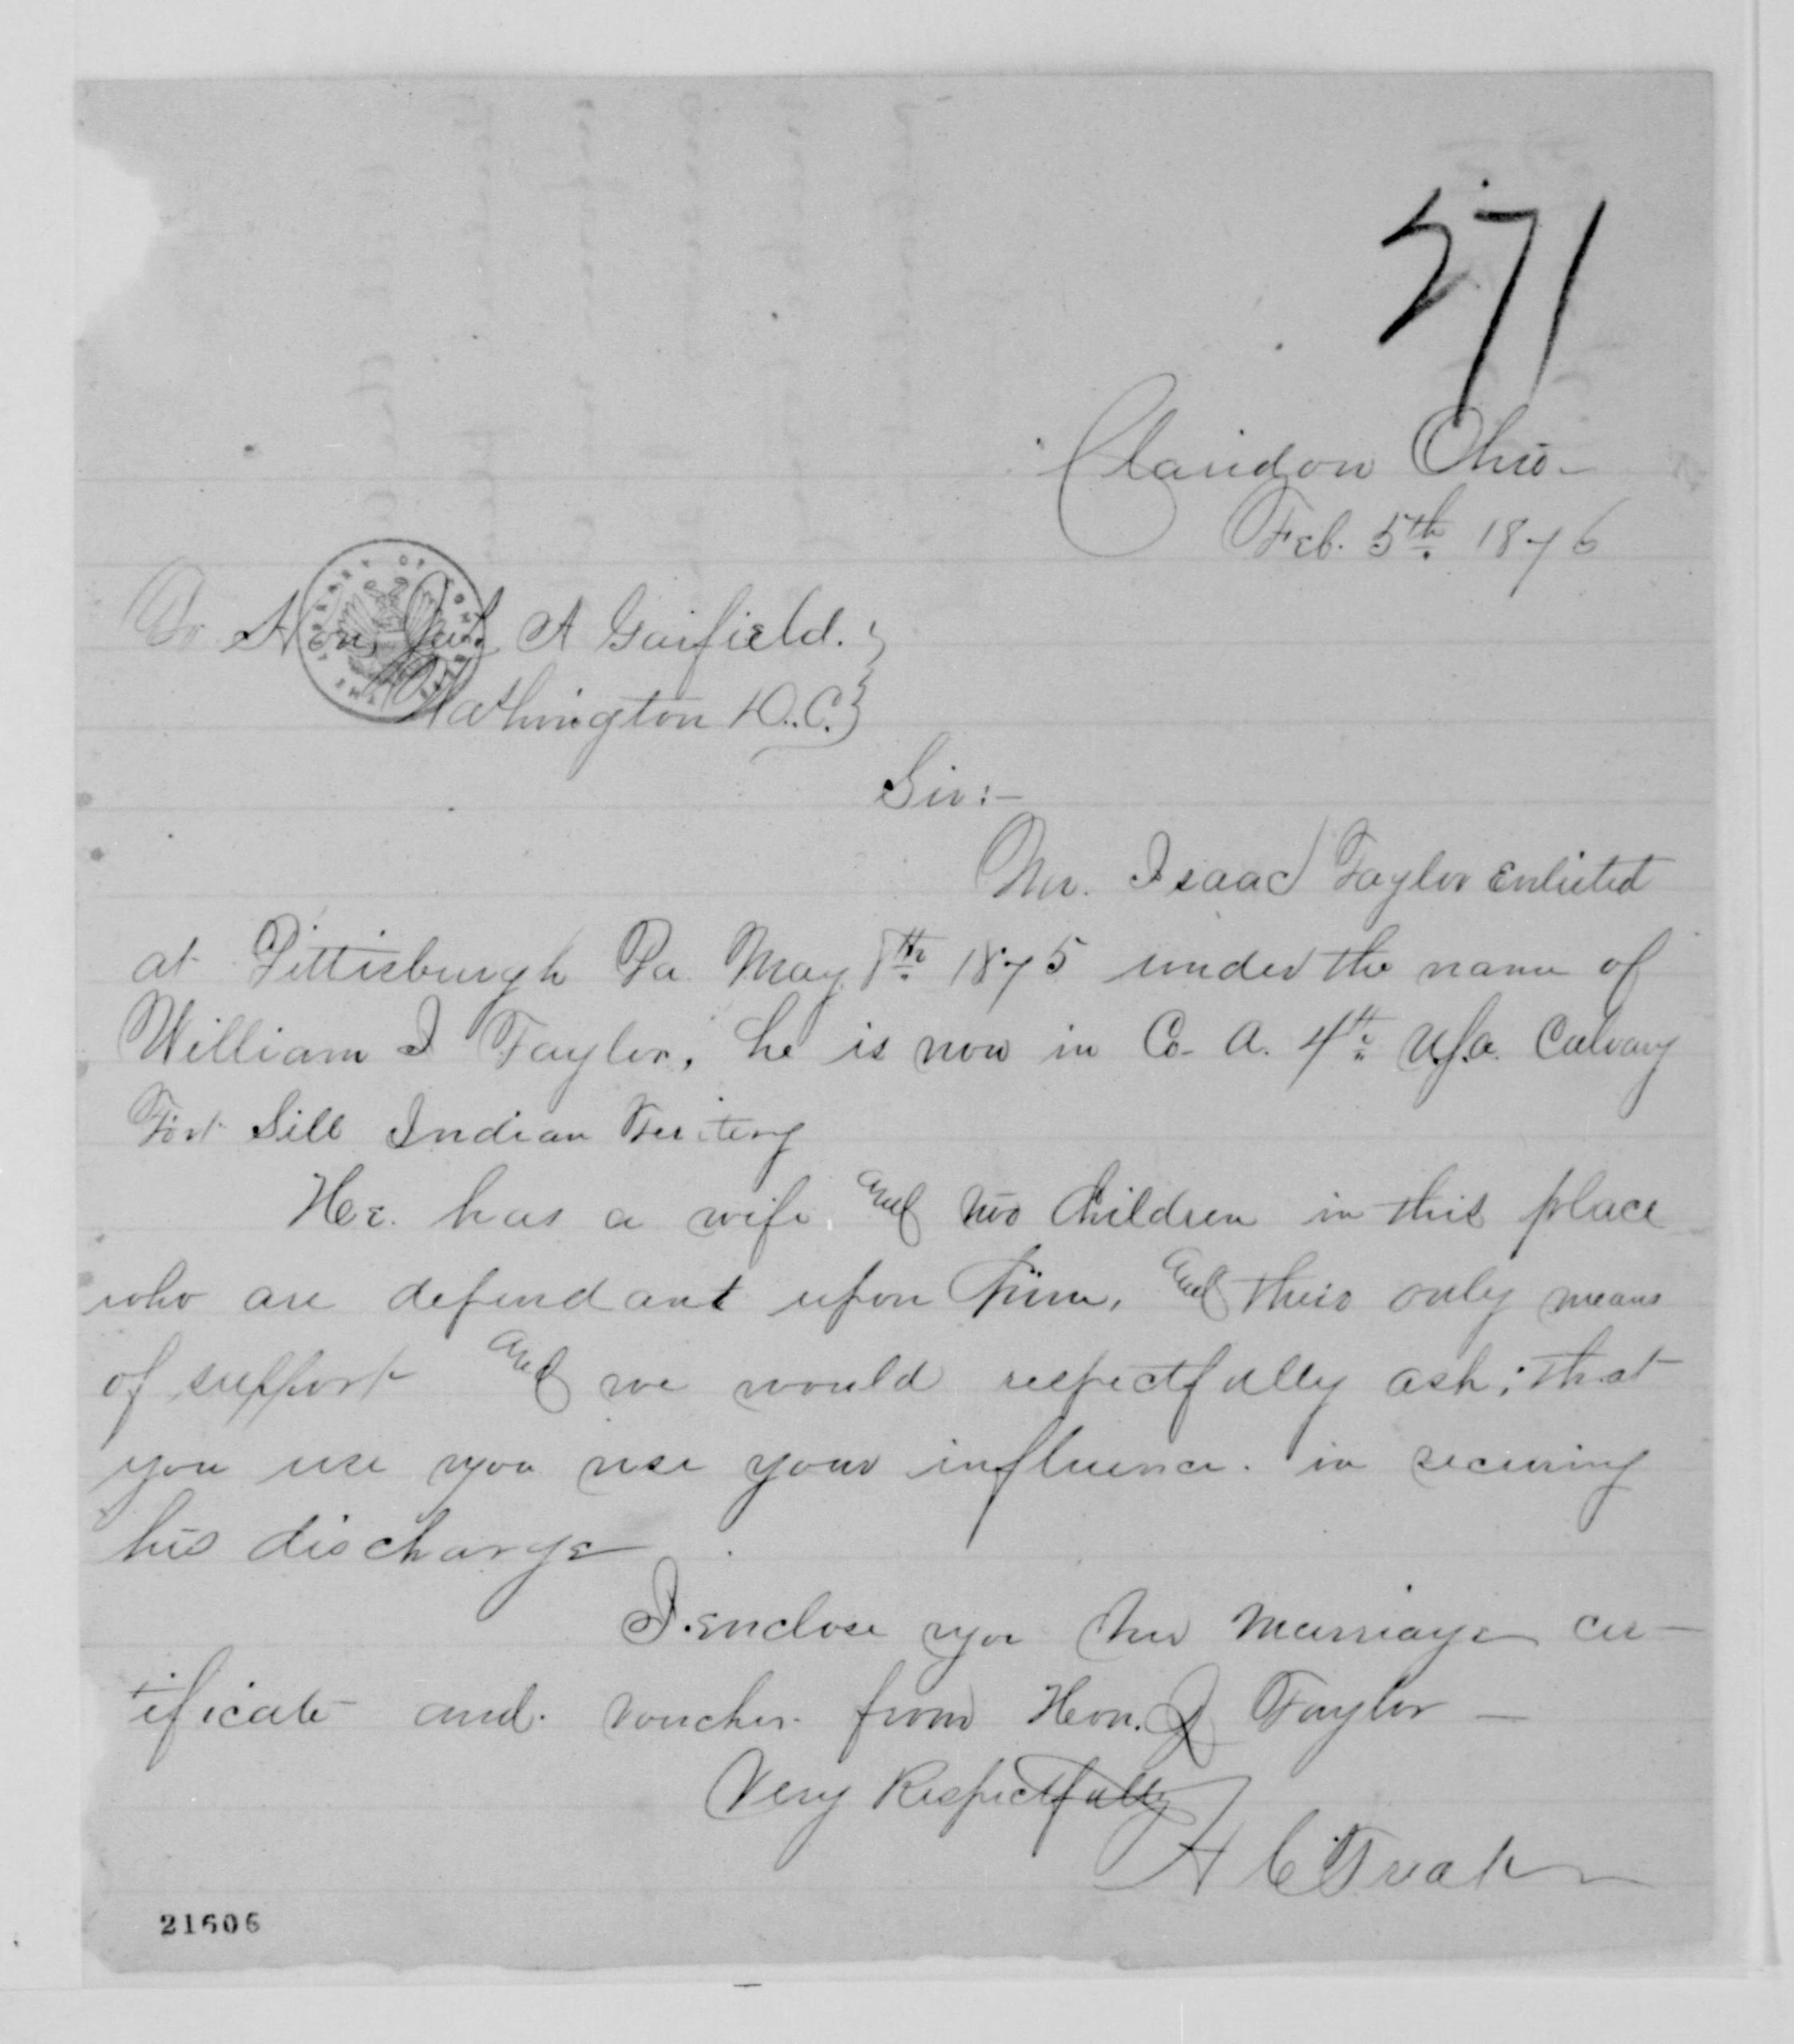 571
Claridon Ohio-
Feb. 5th 1876
To Hon Jas A Garfield.
Washington D.C.
Sir:-
Mr. Isaac Taylor Enlisted
at Pittisburgh Pa May 8th 1875 under the name of
William I Taylor, he is now in Co- A. 4th U.S.A. Calvary
Fort Sill Indian Teritery
He. has a wife, and two Children in this place
who are dependant upon him, and their only means
of support and we would respectfully ask; that
you use you use your influence. in securing
his discharge
I enclose you her Marriage cer-
tificate and. voucher from Hon. J Taylor -
Very Respectfully
H C Treat
21606
LIBRARY OF CONGRESS